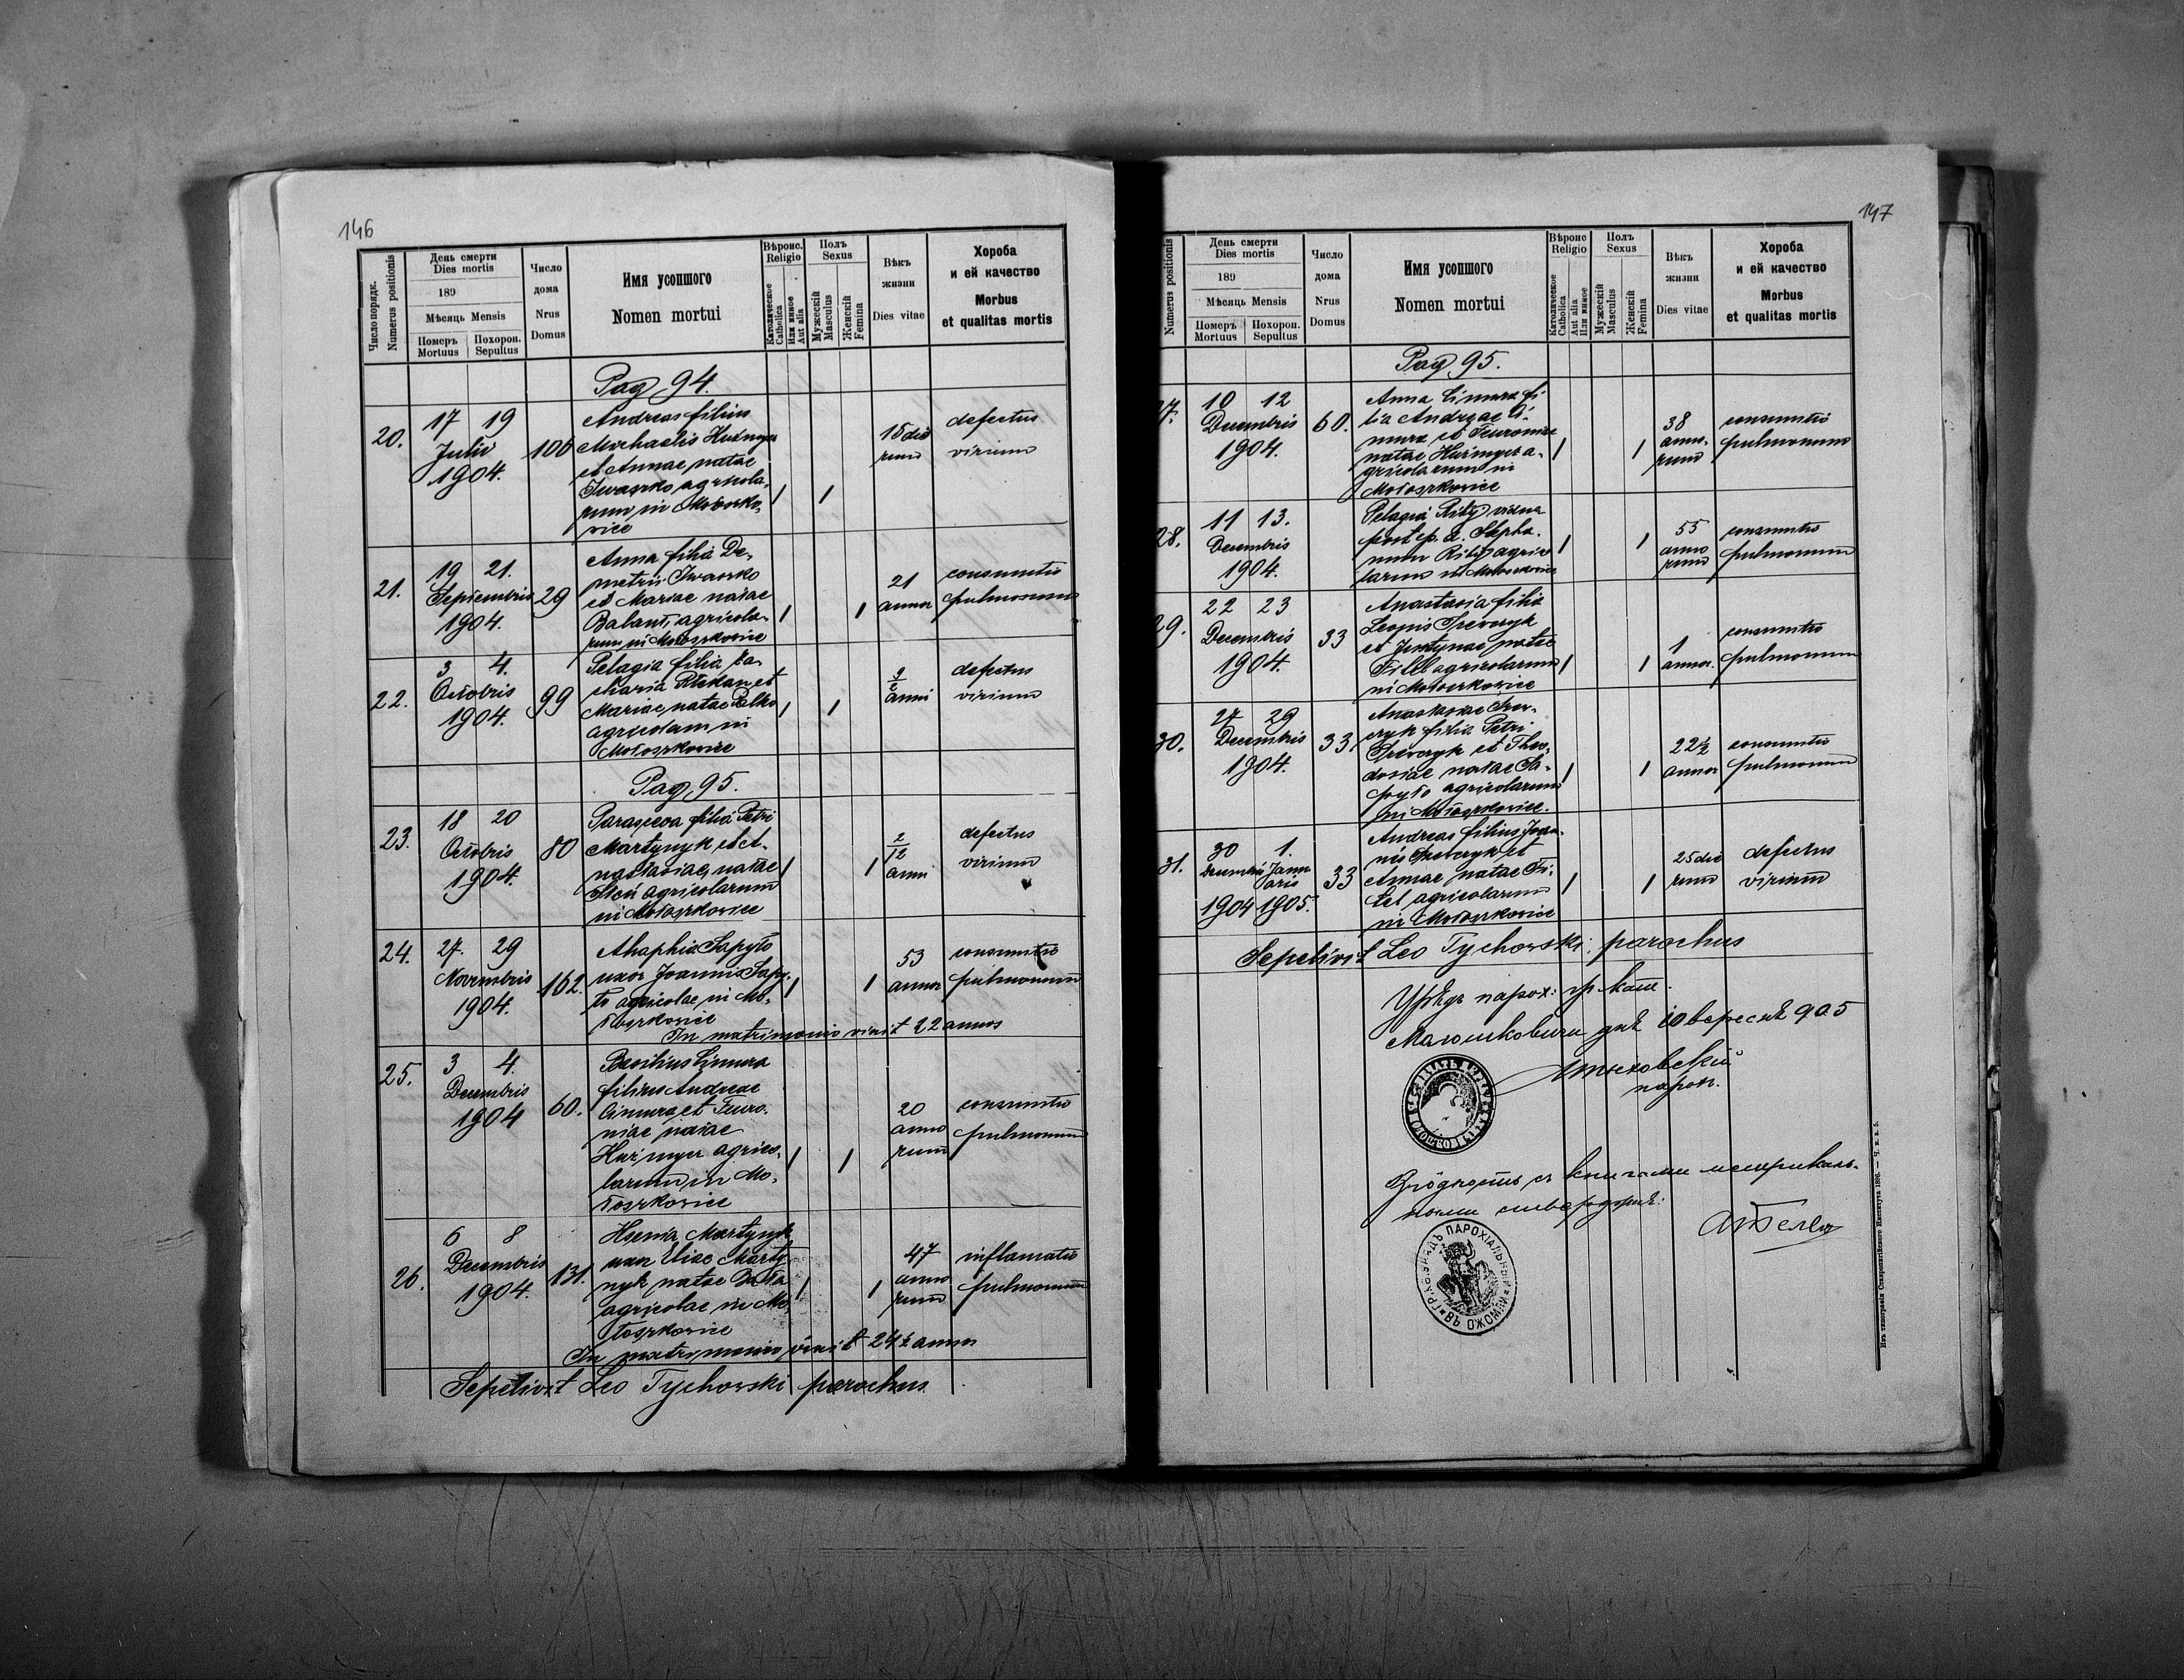 146
Число порядк.
Numerus positionis
День смерти
Dies mortis
189
Мѣсяць Mensis
Померъ
Mortuus
Похорон.
Sepultus
Число
дома
Nrus
Domus
Имя усопшого
Nomen mortui
Вѣроис.
Religio
Католическое
Catholica
Или инное
Aut alia
Полъ
Sexus
Мужескій
Masculus
Женскій
Femina
Вѣкъ
жизни
Dies vitae
Хороба
и ей качество
Morbus
et qualitas mortis
Pag 94.
20.
17 19
Julii
1904.
106
Andreas filius
Michaelis
et Annae natae
Iwaszko agricola-
rum in
vice
/ /
15 die
rum
defectus
virium
21.
19 21.
Septembris
1904.
29
Anna filia De-
metrii Iwaszko
et Mariae natae
agricola-
rum in Mołoszkowice
/ /
21
annor
consumtio
pulmonum
22.
3 4.
Octobris
1904.
99
Pelagia filia Za-
charia et
Mariae natae
agricolarum in
Mołoszkowice
/ /
anni
defectus
virium
Pag 95.
23.
18 20
Octobris
1904.
80
Parasceva filia Petri
Martynyk et A-
nastasiae natae
agricolarum
in Mołoszkowice
/ /
2/12
anni
defectus
virium
24.
27. 29
Novembris
1904.
162.
Ahaphia Sapyło
uxor Joannis Sapy-
ło agricolae in Mo-
łoszkowice
/ /
53
annor
consumtio
pulmonum
In matrimonio vixit 22 annos
25.
3 4.
Decembris
1904
60.
Basilius Cimura
filius Andreae
Cimura et Feuro-
niae natae
agrico-
larum in Mo-
łoszkowice
/ /
20
anno
rum
consumtio
pulmonum
26.
6 8
Decembris
1904.
131.
Martynyk
uxor Eliae Marty
nyk natae
agricolae in Mo-
łoszkowice
/ /
47
anno
rum
inflamatio
pulmonum
In matrimonio vixit 24 ½ annos
Sepelivit Leo Tychowski parochus
147
Numerus positionis
День смерти
Dies mortis
189
Мѣсяць Mensis
Померъ
Mortuus
Похорон.
Sepultus
Число
дома
Nrus
Domus
Имя усопшого
Nomen mortui
Вѣроис
Religio
Католическое
Catholica
Aut alia
Или инное
Полъ
Sexus
Мужескій
Masculus
Женскій
Femina
Вѣкъ
жизни
Dies vitae
Хороба
и ей качество
Morbus
et qualitas mortis
Pag 95.
7.
10 12
Decembris
1904.
60.
Anna Cimura fi-
lia Andreae Ci-
mura et Feuroniae
natae a-
gricolarum in
Mołoszkowice
/ /
38
anno-
rum
consumtio
pulmonum
28.
11 13.
Decembris
1904.
Pelagia vidua
post Stepha-
num agrico
larum in Mołoszkowice
/ /
55
anno
rum
consumtio
pulmonum
29.
22 23
Decembris
1904.
33
Anastasia filia
Leonis
et Justynae natae
agricolarum
in Mołoszkowice
/ /
1
annor.
consumtio
pulmonum
30.
27 29
Decembris
1904.
33
filia Petri
et Theo-
dosiae natae Sa-
pyło agricolarum
in Mołoszkowice.
/ /
22½
annor
consumtio
pulmonum
31.
30 1.
Decembris Janu
aris
1904 1905.
33
Andreas filius Joan-
nis et
Annae natae
agricolarum
in Mołoszkowice
/ /
25 die
rum
defectus
virium
Sepelivit Leo Tychowski parochus
Урядъ парох: гр. кат.
Малошковичи дня 10 вересня 905
парох.
Згôдность съ книгами метрикаль-
ными
ПАРОХІАЛЬНЫЙ
ВЪ ОЖОМЛИ
Изъ типографіи Ставропигійского Института 1896. — Ч. к. в. 5.